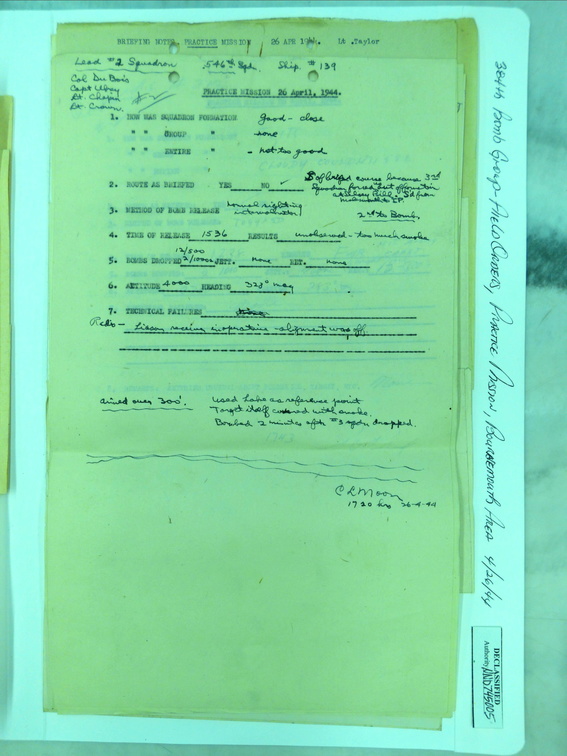 BRIEFING NOTES, PRACTICE MISSION 26 APR 1944. Lt. Taylor
Lead #2 Squadron 546th Sqdn. Ship. # 139
Col Du Bois
Capt
Lt. Chapin
Lt. Crown.
PRACTICE MISSION 26 April, 1944.
1. HOW WAS SQUADRON FORMATION Good - close
" " GROUP " none
" " ENTIRE " - not too good
2. ROUTE AS BRIEFED YES NO ✓ course because 3rd
Squadron forced out
to IP.
3. METHOD OF BOMB RELEASE normal sighting
intervalometer 2nd to Bomb.
4. TIME OF RELEASE 1536 RESULTS unobserved - too much smoke
12/500
5. BOMBS DROPPED 2/1000s JETT. none RET. none
6. ALTITUDE 4000 HEADING 323° mag
7. TECHNICAL FAILURES
Radio - Liaison receiver inoperative - alignment was off.
aimed over 300'. Used Lake as reference point
Target itself covered with smoke.
Bombed 2 minutes after #3 sqdn dropped.
C L Moon
1720 hrs 26-4-44
384th Bomb Group - Field Orders, Practice Mission, Bournemouth Area 4/26/44
DECLASSIFIED
Authority NND 745005